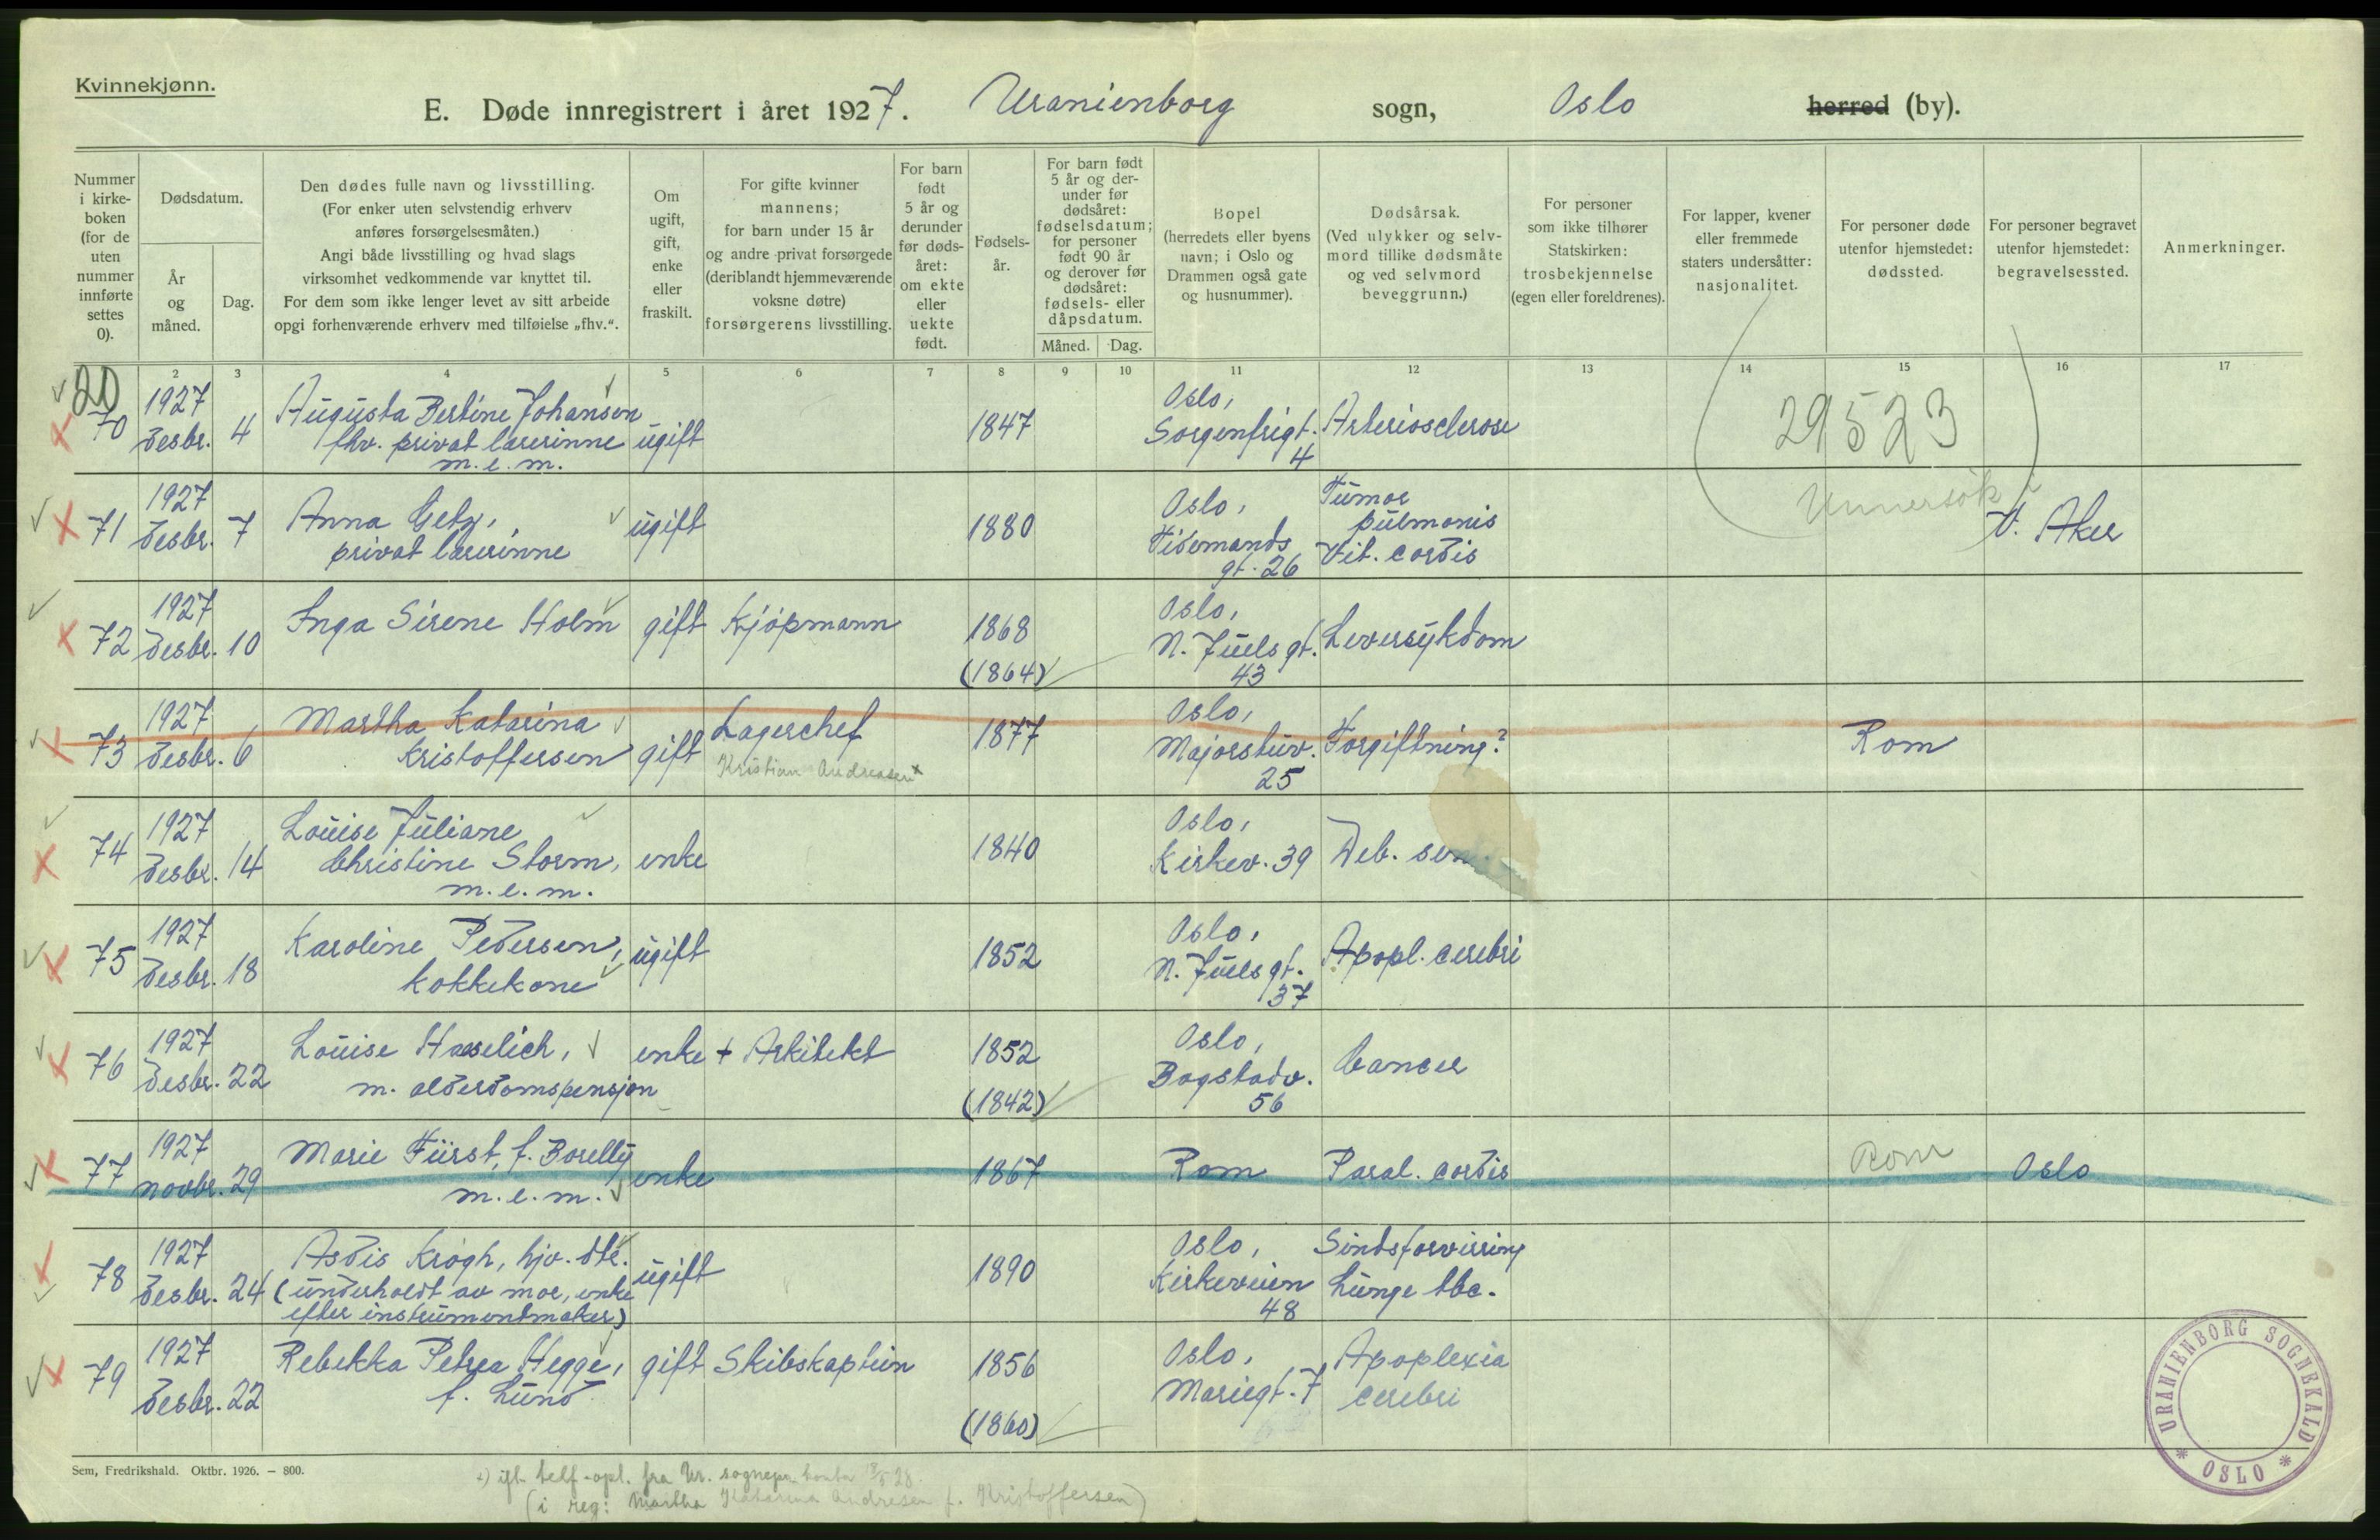 Kvinnekjønn.
E. Døde innregistrert i året 1927. Uranienborg sogn, Oslo herred (by).
Nummer i kirke-boken (for de uten nummer innførte settes 0).
Dødsdatum.
År og måned.
Dag.
Den dødes fulle navn og livsstilling.
(For enker uten selvstendig erhverv
anføres forsørgelsesmåten.)
Angi både livsstilling og hvad slags
virksomhet vedkommende var knyttet til.
For dem som ikke lenger levet av sitt arbeide
opgi forhenværende erhverv med tilføielse „fhv.“.
Om ugift, gift, enke eller fraskilt.
For gifte kvinner
mannens;
for barn under 15 år
og andre privat forsørgede
(deriblandt hjemmeværende
voksne døtre)
forsørgerens livsstilling.
For barn født 5 år og derunder før døds-året: om ekte eller uekte født.
Fødsels-år.
For barn født 5 år og der-under før dødsåret: fødselsdatum; for personer født 90 år og derover før dødsåret: fødsels- eller dåpsdatum.
Måned. Dag.
Bopel
(herredets eller byens
navn; i Oslo og
Drammen også gate
og husnummer).
Dødsårsak.
(Ved ulykker og selv-
mord tillike dødsmåte
og ved selvmord
beveggrunn.)
For personer
som ikke tilhører
Statskirken:
trosbekjennelse
(egen eller foreldrenes).
For lapper, kvener
eller fremmede
staters undersåtter:
nasjonalitet.
For personer døde
utenfor hjemstedet:
dødssted.
For personer begravet
utenfor hjemstedet:
begravelsessted.
Anmerkninger.
2 3 4 5 6 7 8 9 10 11 12 13 14 15 16 17
20
70 1927 desbr. 4 Augusta Bertine Johansen fhv. privat lærerinne m.e.m. ugift 1847 Oslo, Sorgenfrigt. 4 Arteriosclerose
29523
71 1927 desbr. 7 Anna Getz, privat lærerinne ugift 1880 Oslo, Tidemands gt. 26 Tumor pulmonis Vit. cordis V. Aker
72 1927 desbr. 10 Inga Sirene Holm gift Kjøpmann 1868 (1864) Oslo, N. Juels gt. 43 Leversykdom
73 1927 desbr. 6 Martha Katarina Kristoffersen gift Lagerchef Kristian Andreasen x 1877 Oslo, Majorstuv. 25 Forgiftning? Rom
74 1927 desbr. 14 Louise Juliane Christine Storm, m.e.m. enke 1840 Oslo, Kirkev. 39 Deb. sen.
75 1927 desbr. 18 Karoline Pedersen, kokkekone ugift 1852 Oslo, N. Juels gt. 37 Apopl. cerebri
76 1927 desbr. 22 Louise Haeselich, m. alderdomspensjon enke + Arkitekt 1852 (1842) Oslo, Bogstadv. 56 Cancer
77 1927 novbr. 29 Marie Fürst, f. Borelly m.e.m. enke 1867 Rom Paral. cordis Rom Oslo
78 1927 desbr. 24 Asdis Krogh, hjv. dtr. (underholdt av mor, enke efter instrumentmaker) ugift 1890 Oslo, Kirkeveien 48 Sindsforvirring Lunge tbc.
79 1927 desbr. 22 Rebekka Petrea Hegge, f. Lund gift Skibskaptein 1856 (1860) Oslo, Mariegt. 7 Apoplexia cerebri
Sem, Fredrikshald. Oktbr. 1926. – 800.
x) ift. telf.-opl. fra Ur. sognepr. kontor
(i reg: Martha Katarina Andresen f. Kristoffersen)
URANIENBORG SOGNEKALD * OSLO *